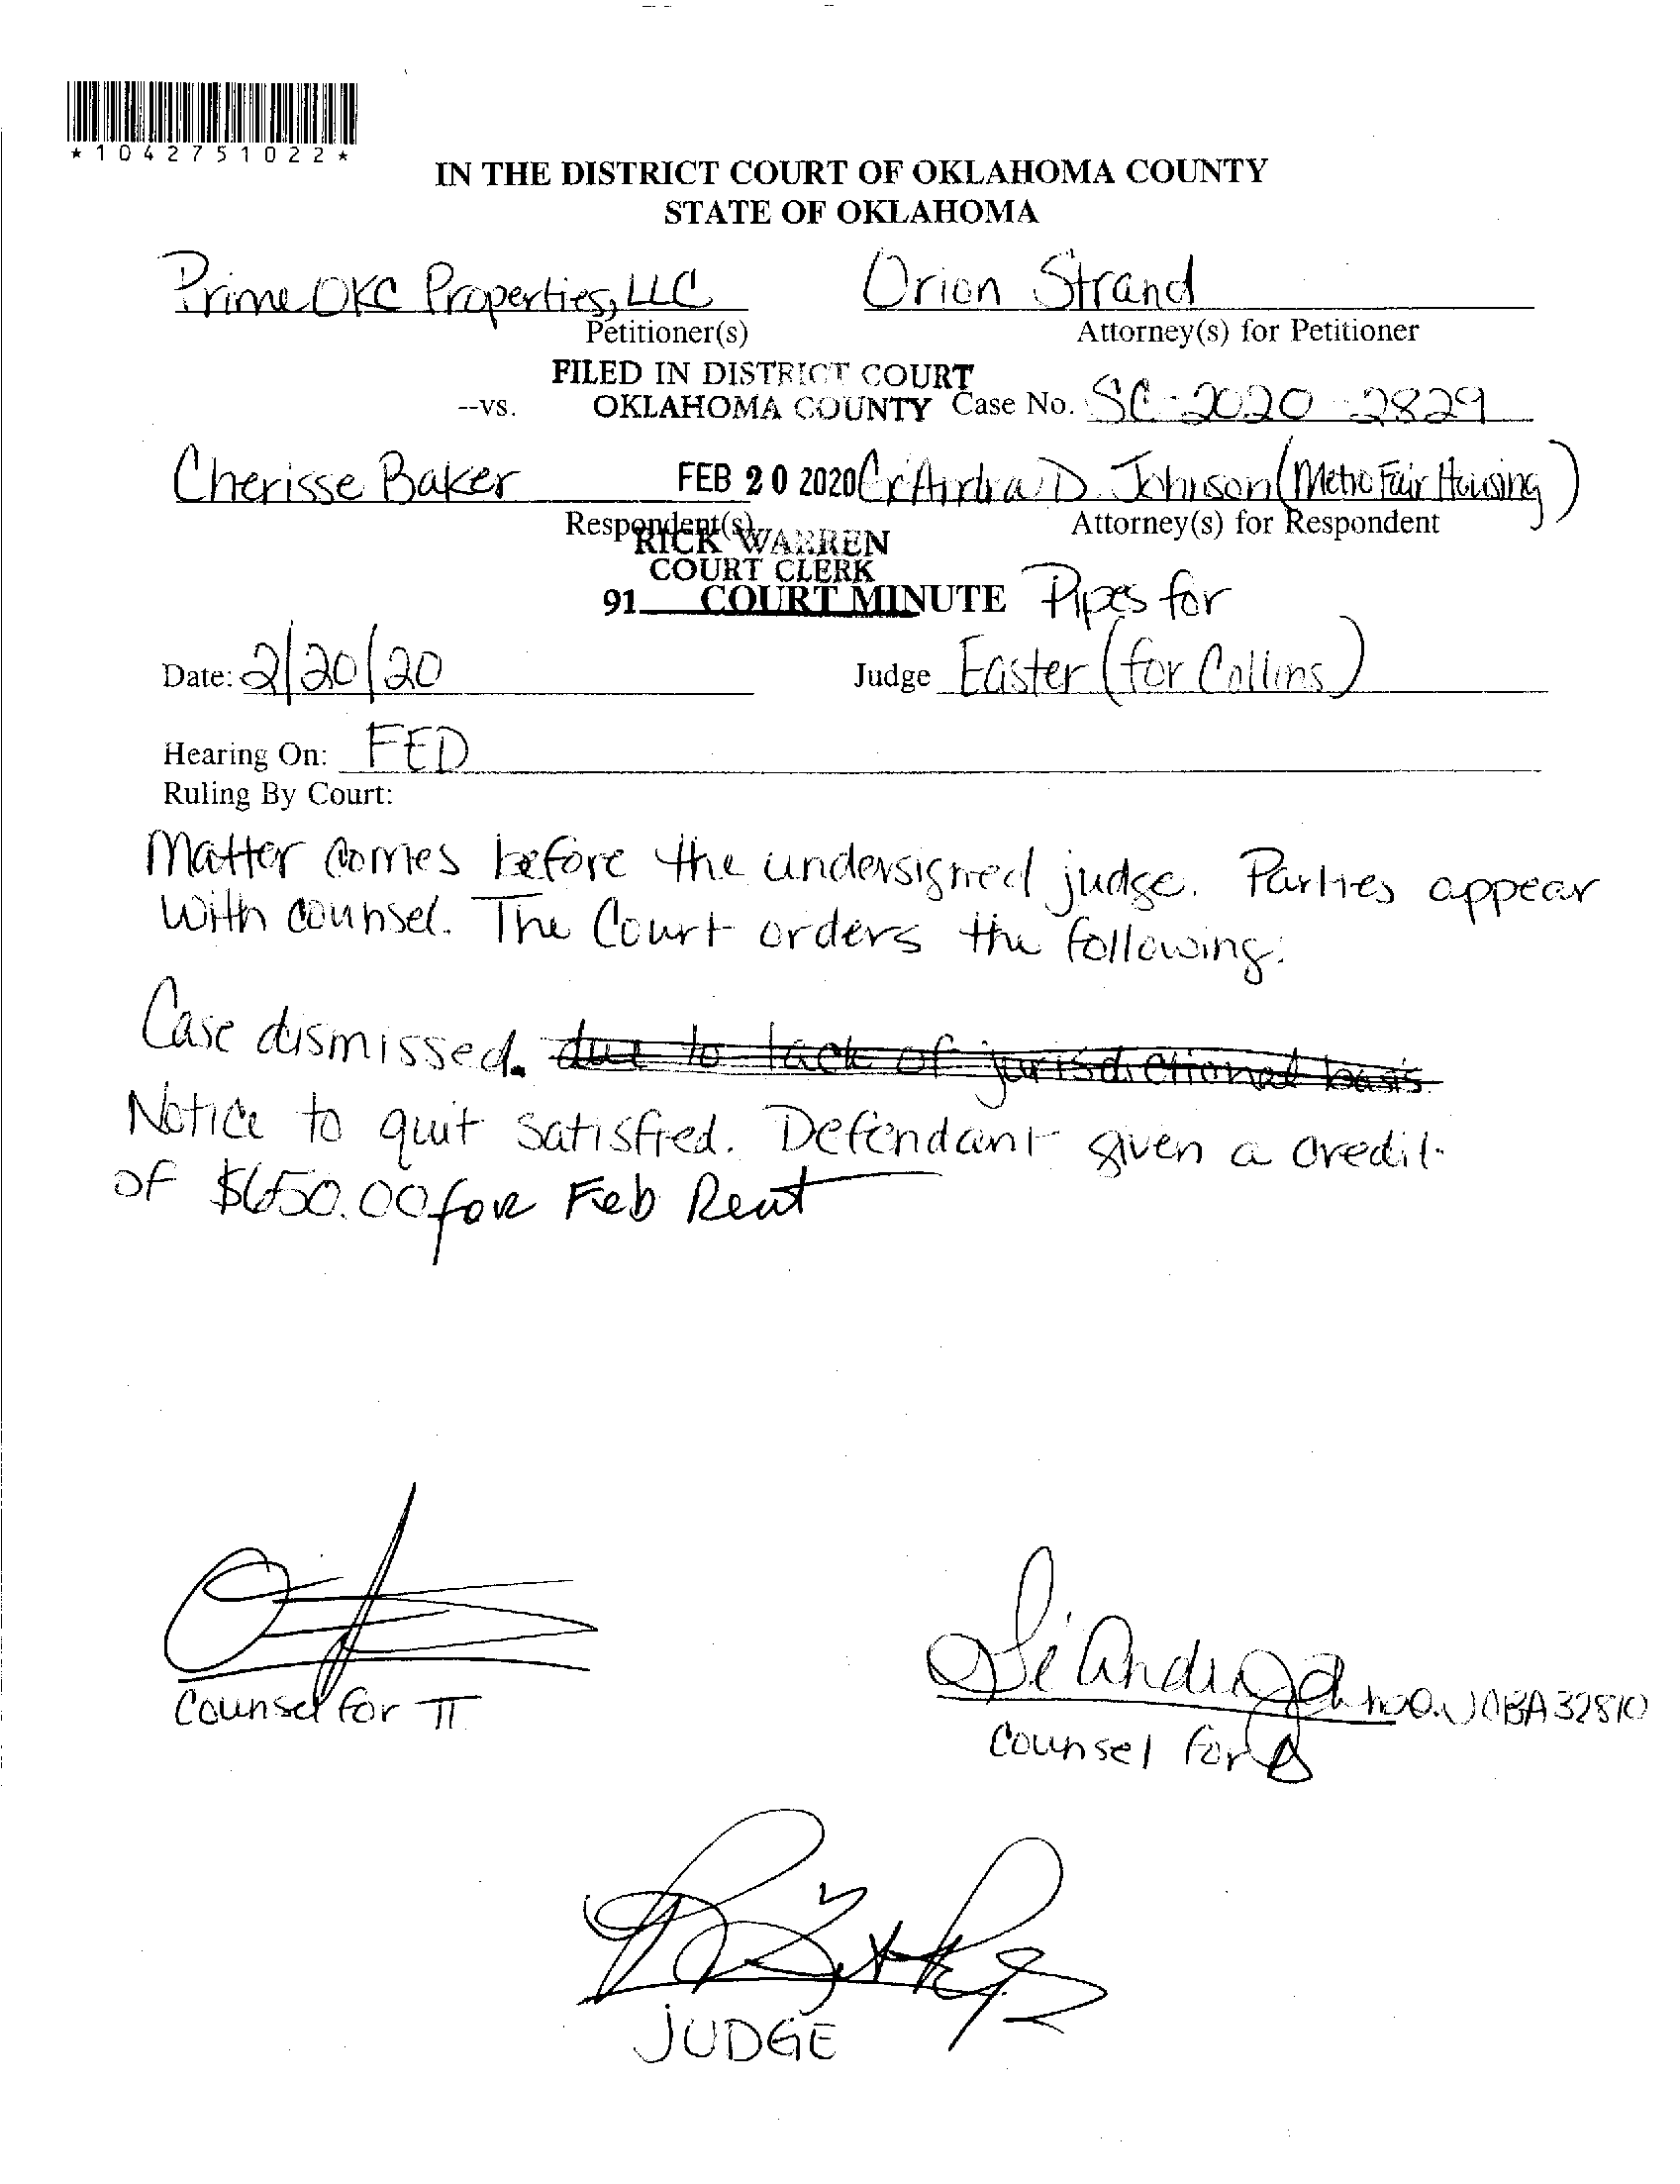 *1042751022*
IN THE DISTRICT COURT OF OKLAHOMA COUNTY
STATE OF OKLAHOMA
Prime OKC Properties, LLC Orion Strand
Petitioner(s) Attorney(s) for Petitioner
FILED IN DISTRICT COURT
--vs. OKLAHOMA COUNTY Case No. SC-2020-2829
Cherisse Baker FEB 20 2020 D. Johnson (Metro Fair Housing)
Respondent(s) Attorney(s) for Respondent
RICK WARREN
COURT CLERK
91 COURT MINUTE Pipes for
Date: 2/20/20 Judge Easter (for Collins)
Hearing On: FED
Ruling By Court:
Matter comes before the undersigned judge. Parties appear
with counsel. The Court orders the following:
Case dismissed. due to lack of jurisdictional basis
Notice to quit satisfied. Defendant given a credit
of $650.00 for Feb Rent
Counsel for π
OBA 32810
Counsel for Δ
JUDGE